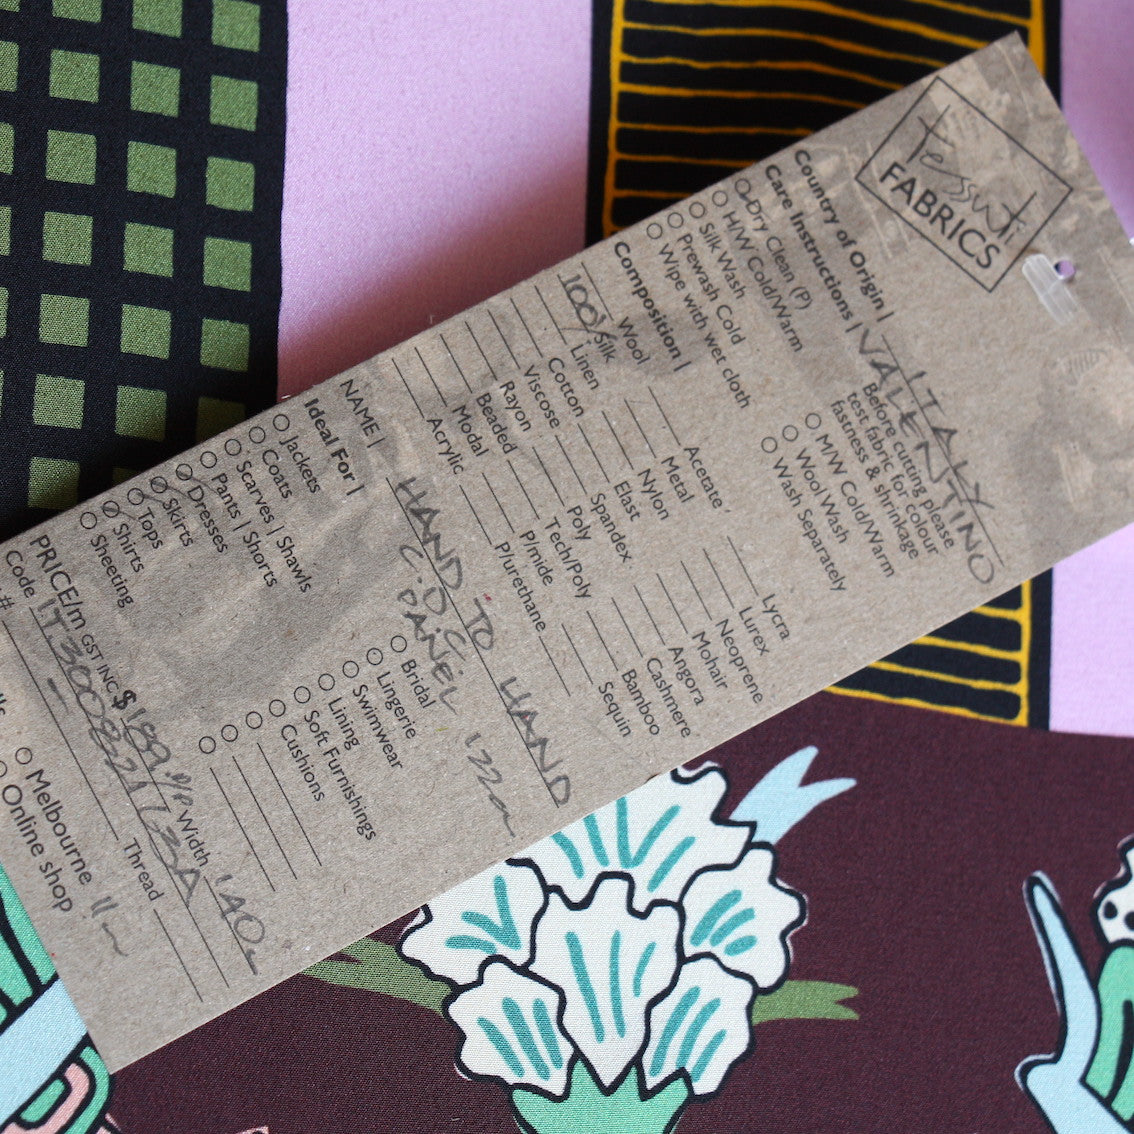 tessuti
FABRICS
Country of Origin | ITALY
Care Instructions | VALENTINO
Dry Clean (P)
H/W Cold/Warm
Silk Wash
Prewash Cold
Wipe with wet cloth
Before cutting please
test fabric for colour
fastness & shrinkage
M/W Cold/Warm
Wool Wash
Wash Separately
Composition |
Wool
100% Silk
Linen
Cotton
Viscose
Rayon
Beaded
Modal
Acrylic
Acetate
Metal
Nylon
Elast
Spandex
Poly
Tech/Poly
P/mide
P/urethane
Lycra
Lurex
Neoprene
Mohair
Angora
Cashmere
Bamboo
Sequin
NAME | HAND TO HAND
C.D.C
Ideal For |
Jackets
Coats
Scarves | Shawls
Pants | Shorts
Dresses
Skirts
Tops
Shirts
Sheeting
Bridal
Lingerie
Swimwear
Lining
Soft Furnishings
Cushions
PRICE/m GST INC $ 189 Width 140
Code
#
Thread
Melbourne 11m
Online shop